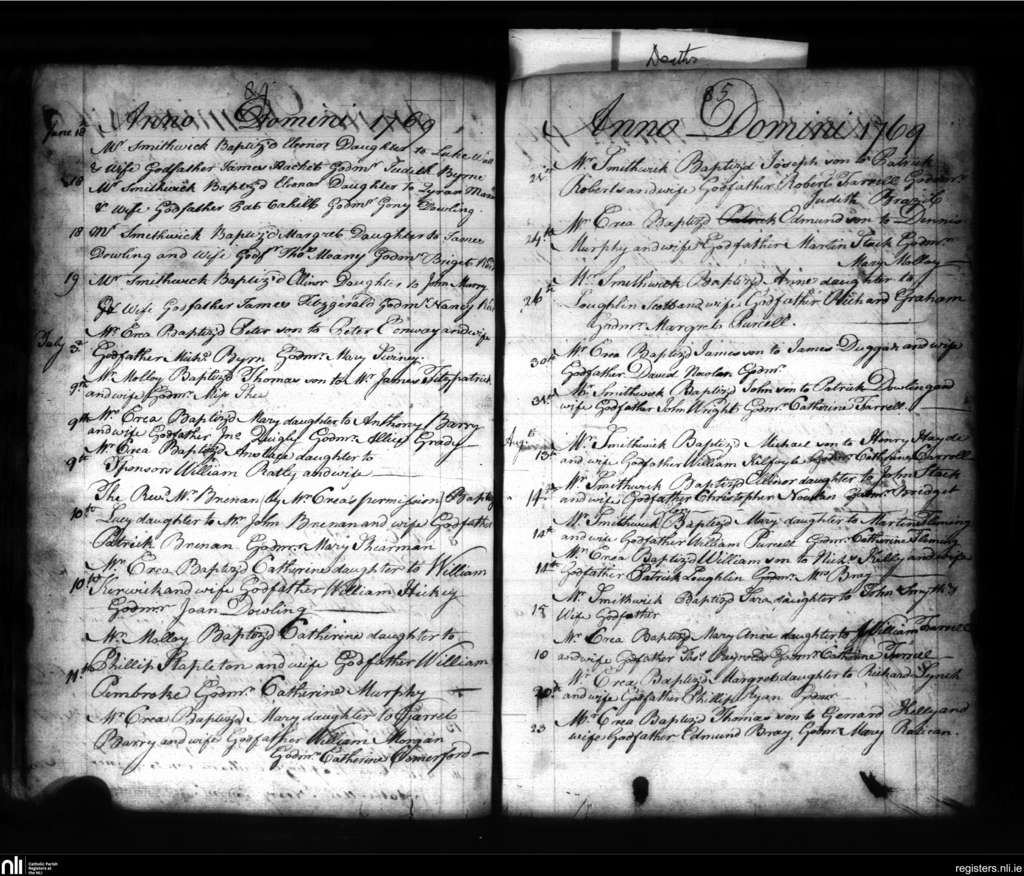 Deaths
84
Anno Domini 1769
June 18 Mr Smithwick Baptiz'd Elenor Daughter to Luke
& Wife Godfather James Hacket Godmr Judith Byrne
18 Mr Smithwick Baptiz'd Elenor Daughter to
& Wife Godfather Pat Cahill Godmr Dowling.
18 Mr Smithwick Baptiz'd Margret Daughter to James
Dowling and Wife Godfr Thos Meany Godmr Briget
19 Mr Smithwick Baptiz'd Ellinor Daughter to John Murry
Wife Godfather James Fitzgerald Godmr Nancy
Mr Crea Baptiz'd Peter son to Peter Conway and wife
July 3d Godfather Michl Byrn Godmr Mary Tierney.
9th Mr Molloy Baptiz'd Thomas son to Mr James Fitzpatrick
and wife Godmr Miss Shee
9th Mr Crea Baptiz'd Mary daughter to Anthony Barry
and wife Godfather Jno Quigly Godmr Grady
9th Mr Crea Baptiz'd daughter to
Sponsors William Ratly and wife
The Revd Mr Brenan (by Mr Crea's permission) Baptiz
10th Lucy daughter to Mr John Brenan and wife Godfather
Patrick Brenan Godmr Mary Shearman
Mr Crea Baptiz'd Catherine daughter to William
10th Kerwick and wife Godfather William Hickey
Godmr Joan Dowling
Mr Molloy Baptiz'd Catherine daughter to
11th Phillip Stapleton and wife Godfather William
Pembroke Godmr Catherine Murphy
Mr Crea Baptiz'd Mary daughter to Garret
Barry and wife Godfather William Morgan
Godmr Catherine Comerford
85
Anno Domini 1769
Mr Smithwick Baptiz'd Joseph son to Patrick
Roberts and wife Godfather Robert Farrell Godmr
Judith
24th Mr Crea Baptiz'd Edmund son to Dennis
Murphy and wife Godfather Martin Stack Godmr
Mary Molloy
Mr Smithwick Baptiz'd Anne daughter to
26th Loughlin Scott and wife Godfather Richard Graham
Godmr Margret Purcell.
30th Mr Crea Baptiz'd James son to James Duggan and wife
Godfather David Nowlan Godmr
Mr Smithwick Baptiz'd John son to Patrick Dowling and
wife Godfather John Wright Godmr Catherine Farrell.
Augt Mr Smithwick Baptiz'd Michael son to Henry Hayde
13th and wife Godfather William Kilfoyle Godmr Catherine Carroll
Mr Smithwick Baptiz'd Ellinor daughter to John Stack
14th and wife Godfather Christopher Nowlan Godmr Bridget
Mr Smithwick Baptiz'd Mary daughter to Martin Fleming
14th and wife Godfather William Purcell Godmr Catherine Fleming
Mr Crea Baptiz'd William son to Nichs Kelly and wife
14th Godfather Patrick Loughlin Godmr Mrs Bray
Mr Smithwick Baptiz'd Sara daughter to John Smyth &
15 Wife Godfather
Mr Crea Baptiz'd Mary Anne daughter to William Farrell
and wife Godfather Thos Reynolds Godmr Catherine Farrell
Mr Crea Baptiz'd Margret daughter to Richard Lynch
20th and wife Godfather Phillip Ryan Godmr
23 Mr Crea Baptiz'd Thomas son to Gerrard Kelly and
wife Godfather Edmund Bray, Godmr Mary
nli
Catholic Parish
Registers at
the NLI
registers.nli.ie